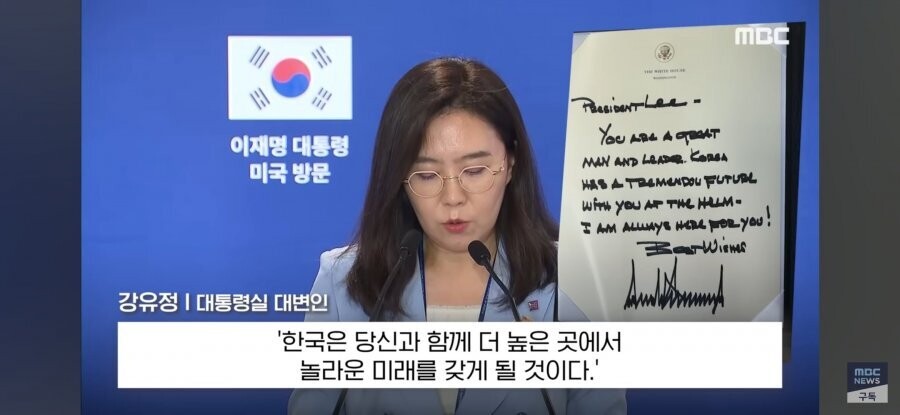 MBC
THE WHITE HOUSE
WASHINGTON
PRESIDENT LEE —
YOU ARE A GREAT
MAN AND LEADER. KOREA
HAS A TREMENDOU FUTURE
WITH YOU AT THE HELM—
I AM ALWAYS HERE FOR YOU!
BEST WISHES
이재명 대통령
미국 방문
강유정 | 대통령실 대변인
'한국은 당신과 함께 더 높은 곳에서
놀라운 미래를 갖게 될 것이다.'
MBC
NEWS
구독